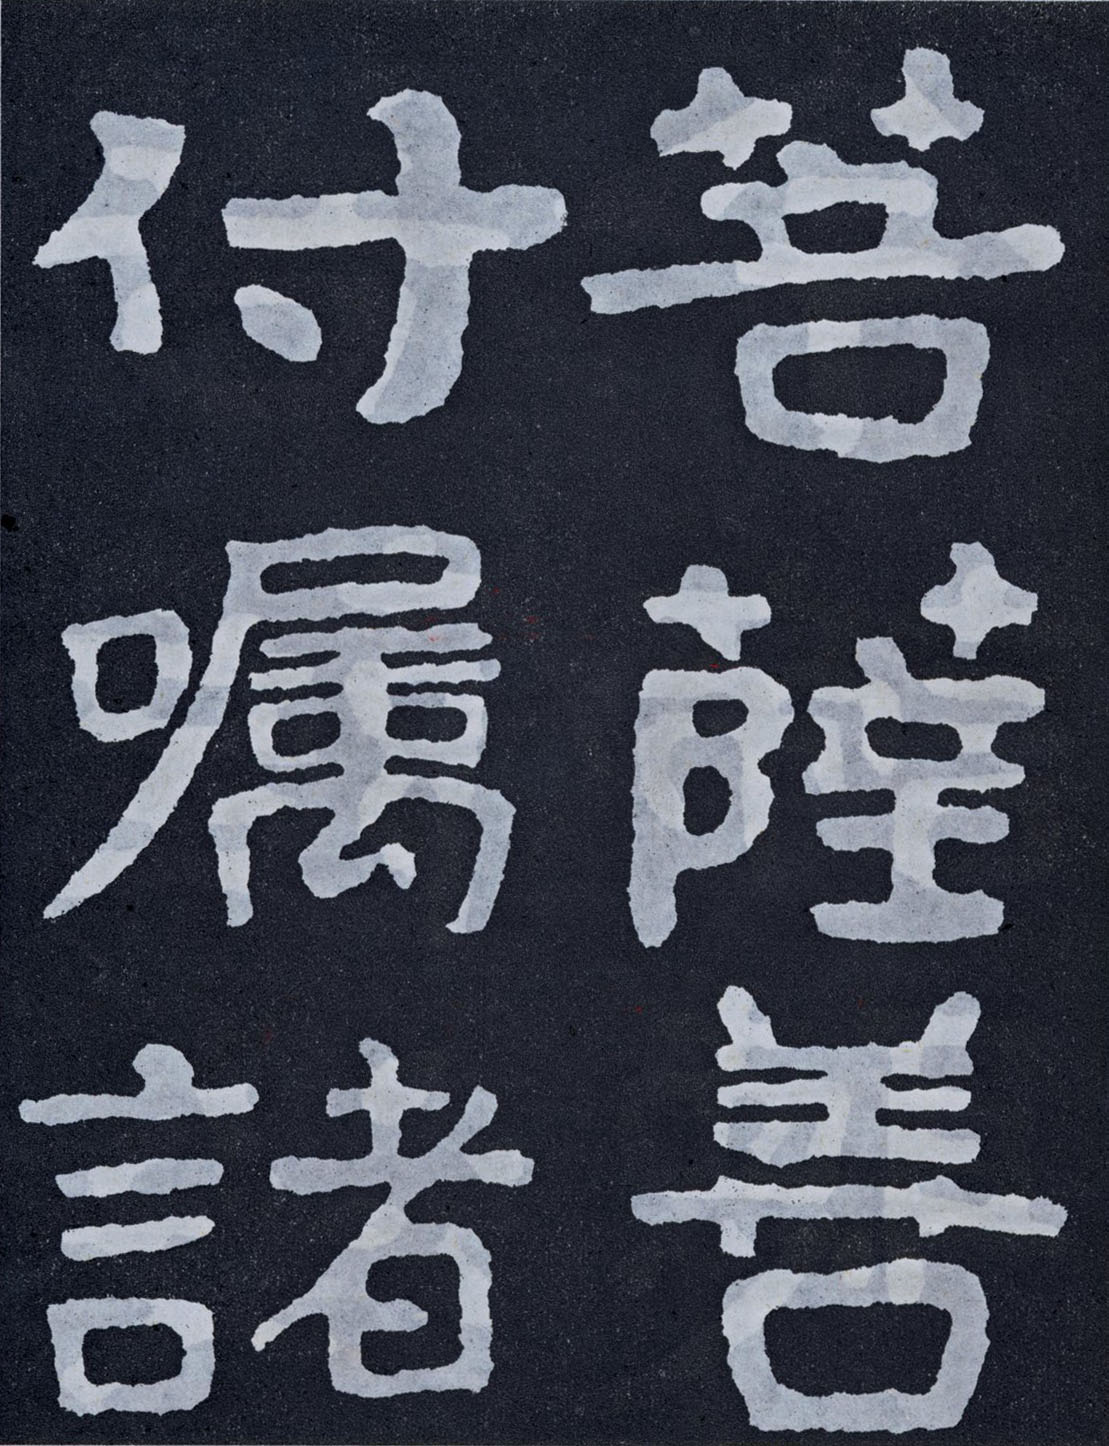 菩薩善
付囑諸